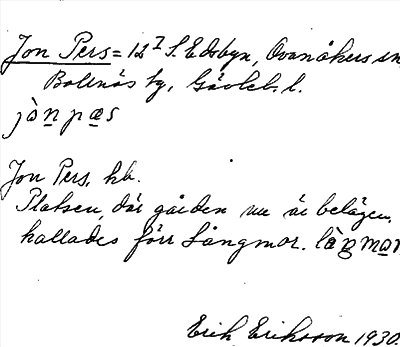 Jon Pers = 12⁷ S. Edsbyn, Ovanåkers sn
Bollnäs tg, Gävleb. l.
jò̀n pæs
Jon Pers, hb.
Platsen, där gården nu är belägen,
kallades förr Långmor.
Erik Eriksson 1930.